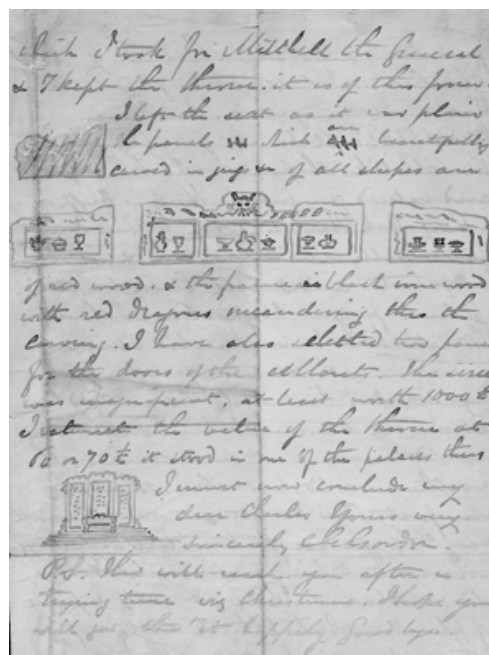 which I took for Mitchell the General
& I kept the throne. it is of this
I left the seat as it was plain
the panels which are beautifully
carved in jugs &c of all shapes are
of red wood. & the frame is black iron wood
with red dragons meandering thro the
carving. I have also selected two
for the doors of the cellarets. The
was magnificent, at least worth 1000£
I estimate the value of the throne at
60 or 70£ it stood in one of the palaces thus
I must now conclude my
dear Charles Yours very
sincerely C Gordon.
P.S. This will reach you after a
trying time viz Christmas. I hope you
will get thro it happily Good bye.